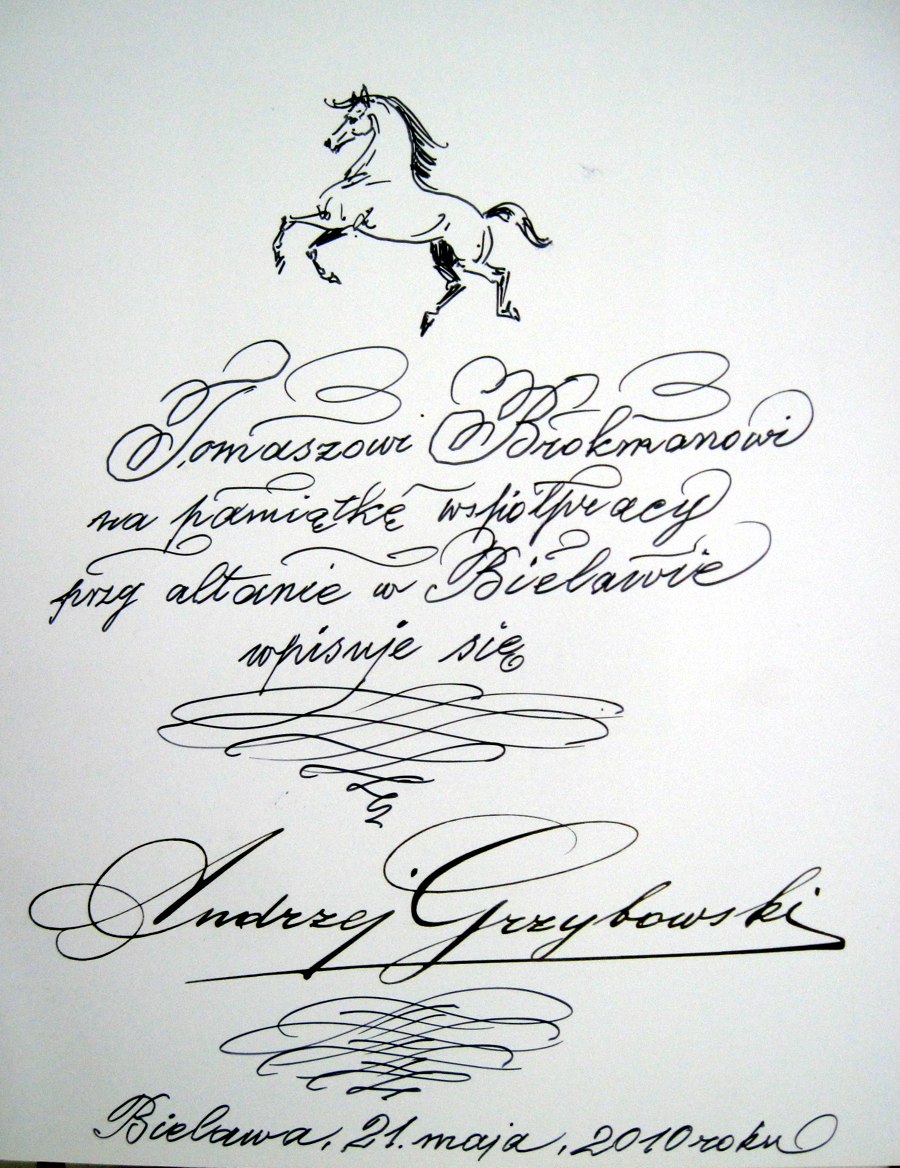 Tomaszowi Brokmanowi
na pamiątkę współpracy
przy altanie w Bielawie
wpisuje się
Andrzej Grzybowski
Bielawa, 21. maja, 2010 roku